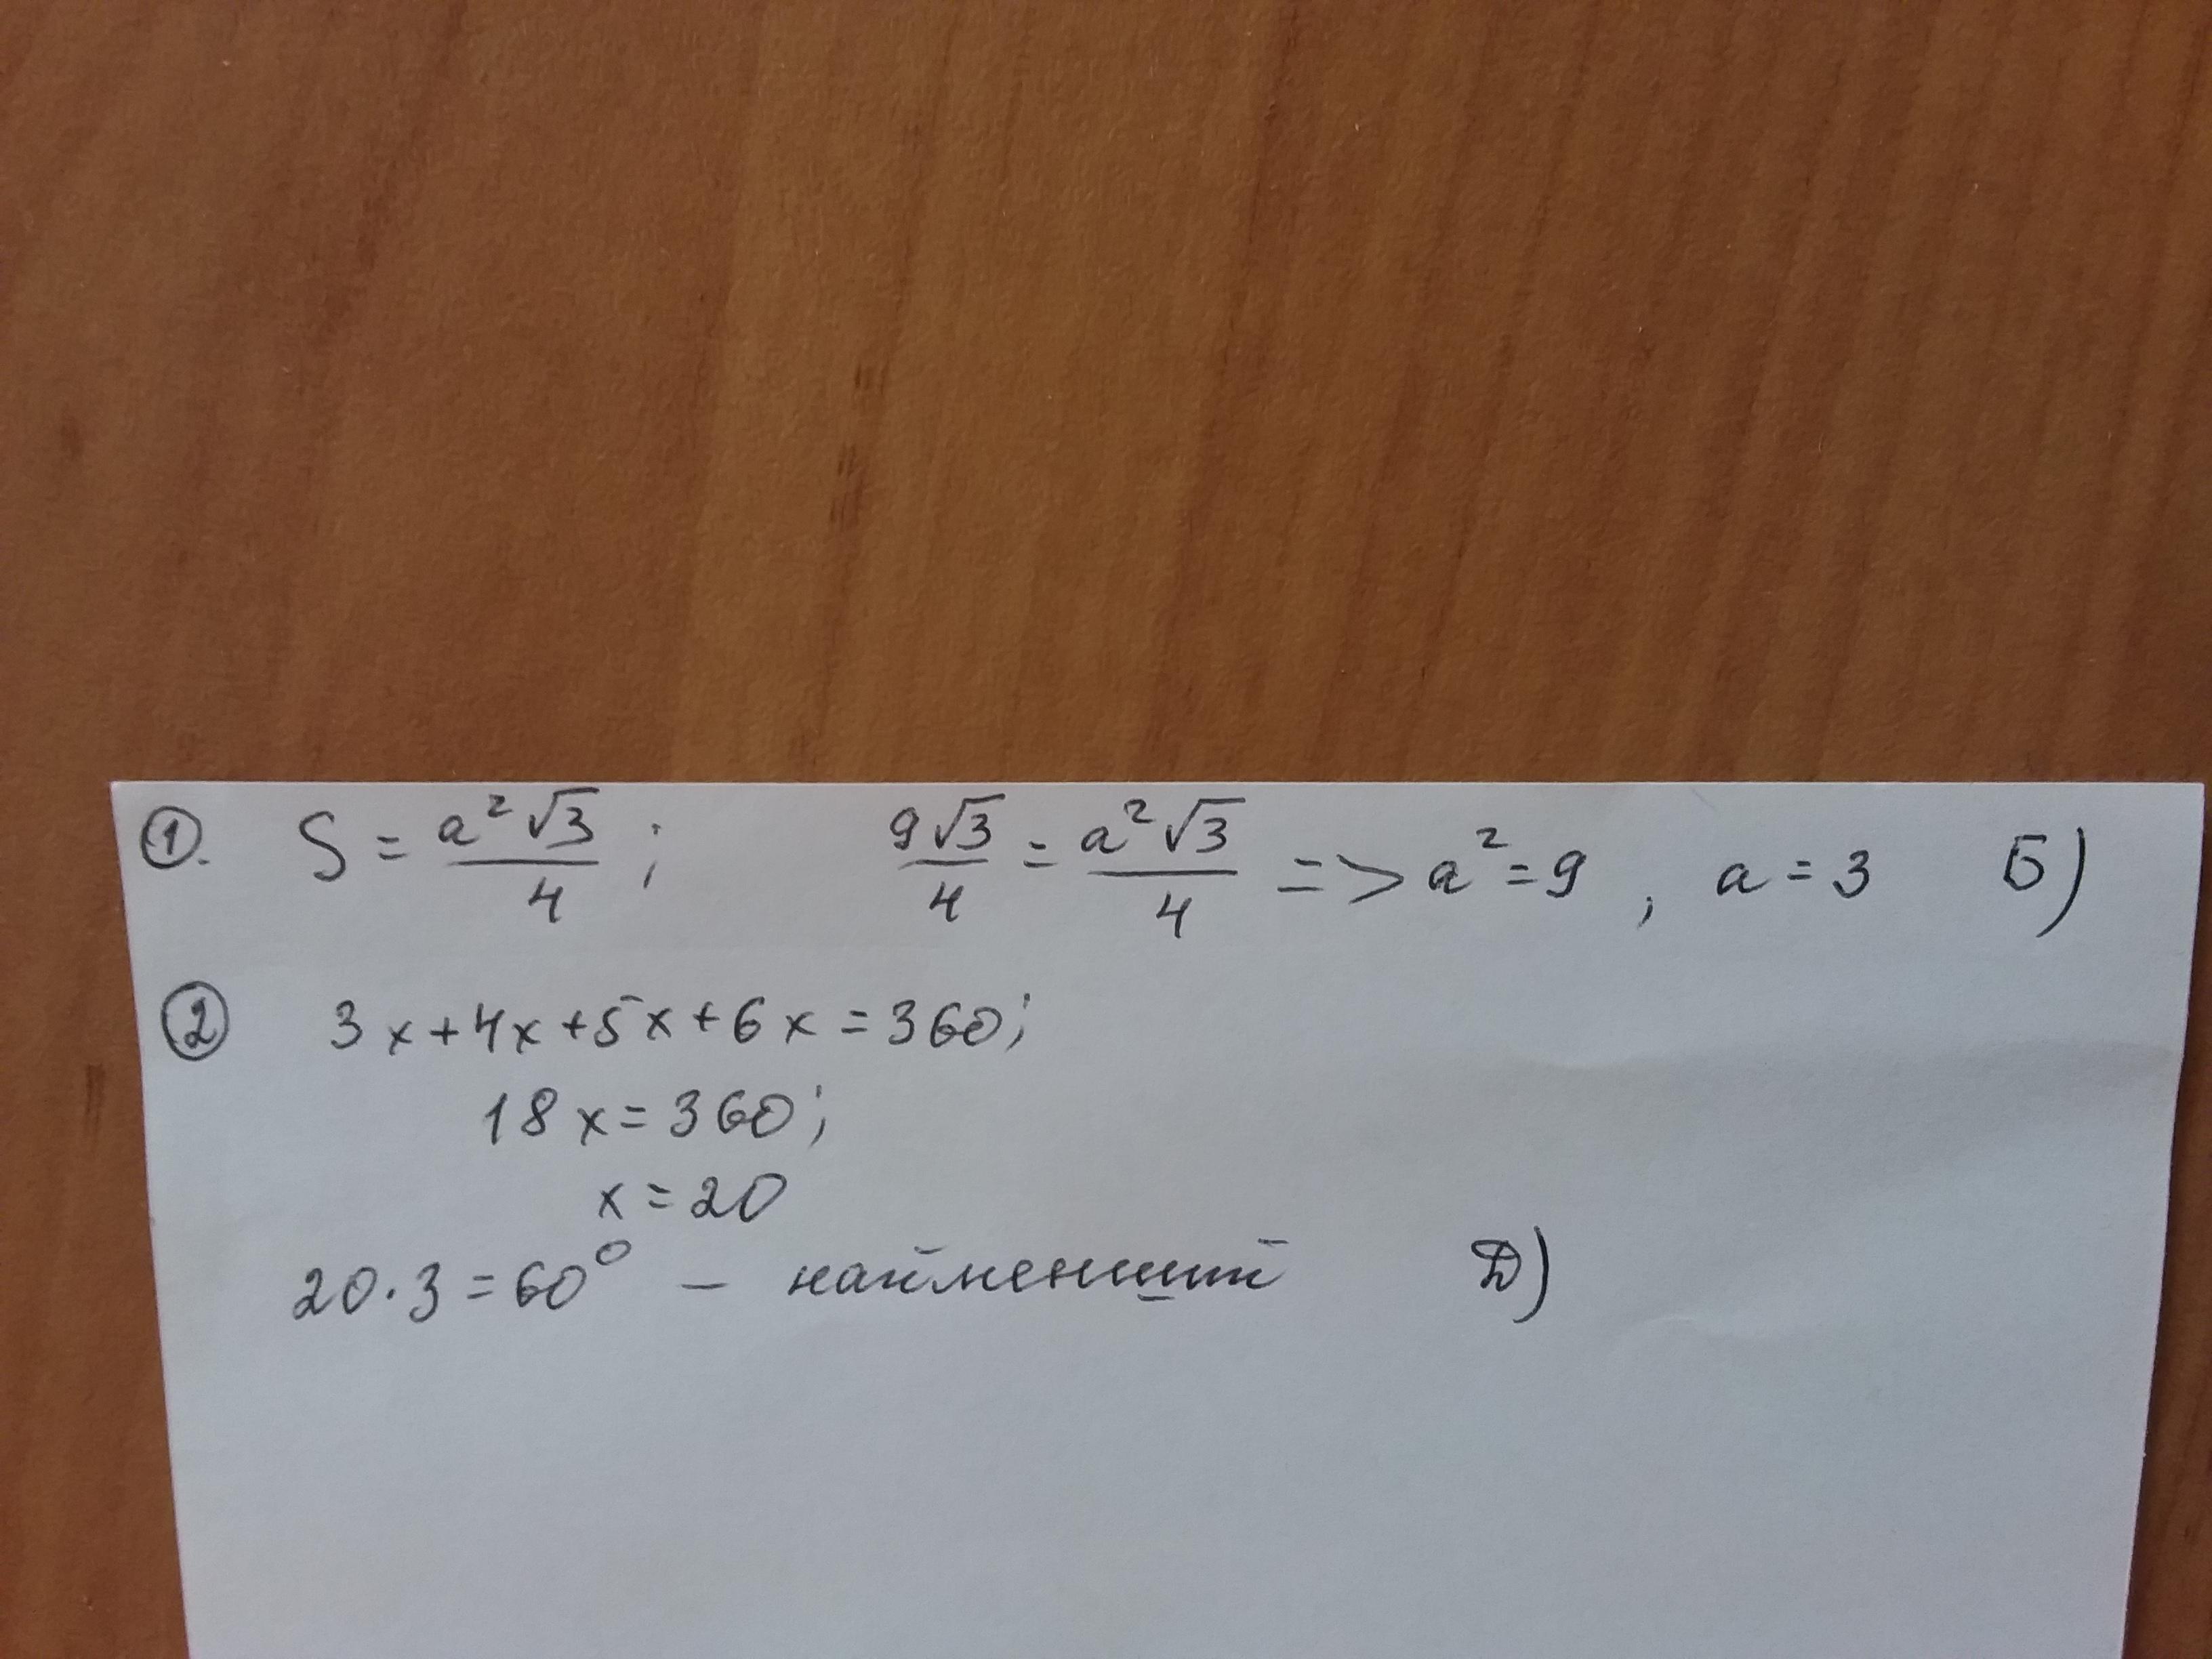 ①. S = a²√3/4 ; 9√3/4 = a²√3/4 => a² = 9 , a = 3 Б)
② 3x+4x+5x+6x = 360;
18x = 360;
x = 20
20·3 = 60° – найменший Д)